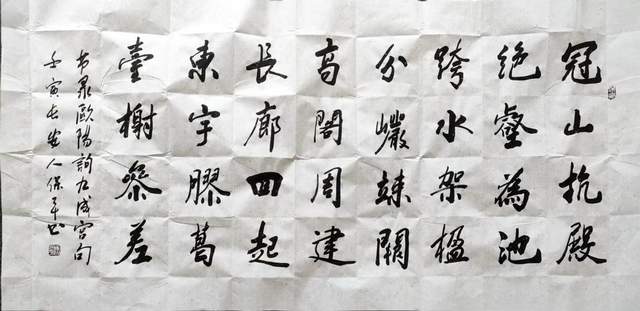 冠山抗殿
绝壑為池
跨水架楹
分巖竦闕
高閣周建
長廊四起
東宇膠葛
臺榭參差
书录歐陽詢九成宫句
壬寅长安人保平书